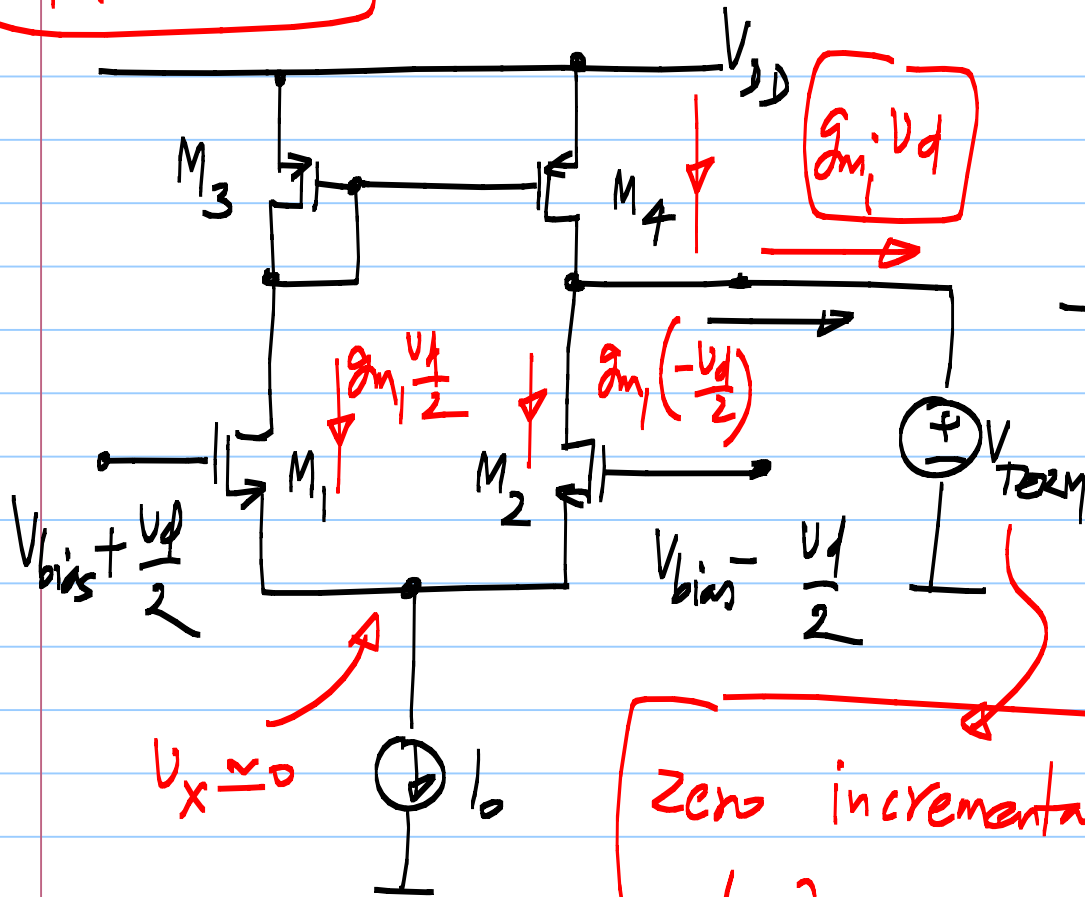 V_DD
g_m1·v_d
M_3
M_4
g_m1 v_d/2
g_m1(-v_d/2)
M_1
M_2
+
V_TERM
V_bias + v_d/2
V_bias - v_d/2
v_x ≃ 0
I_0
Zero incrementa